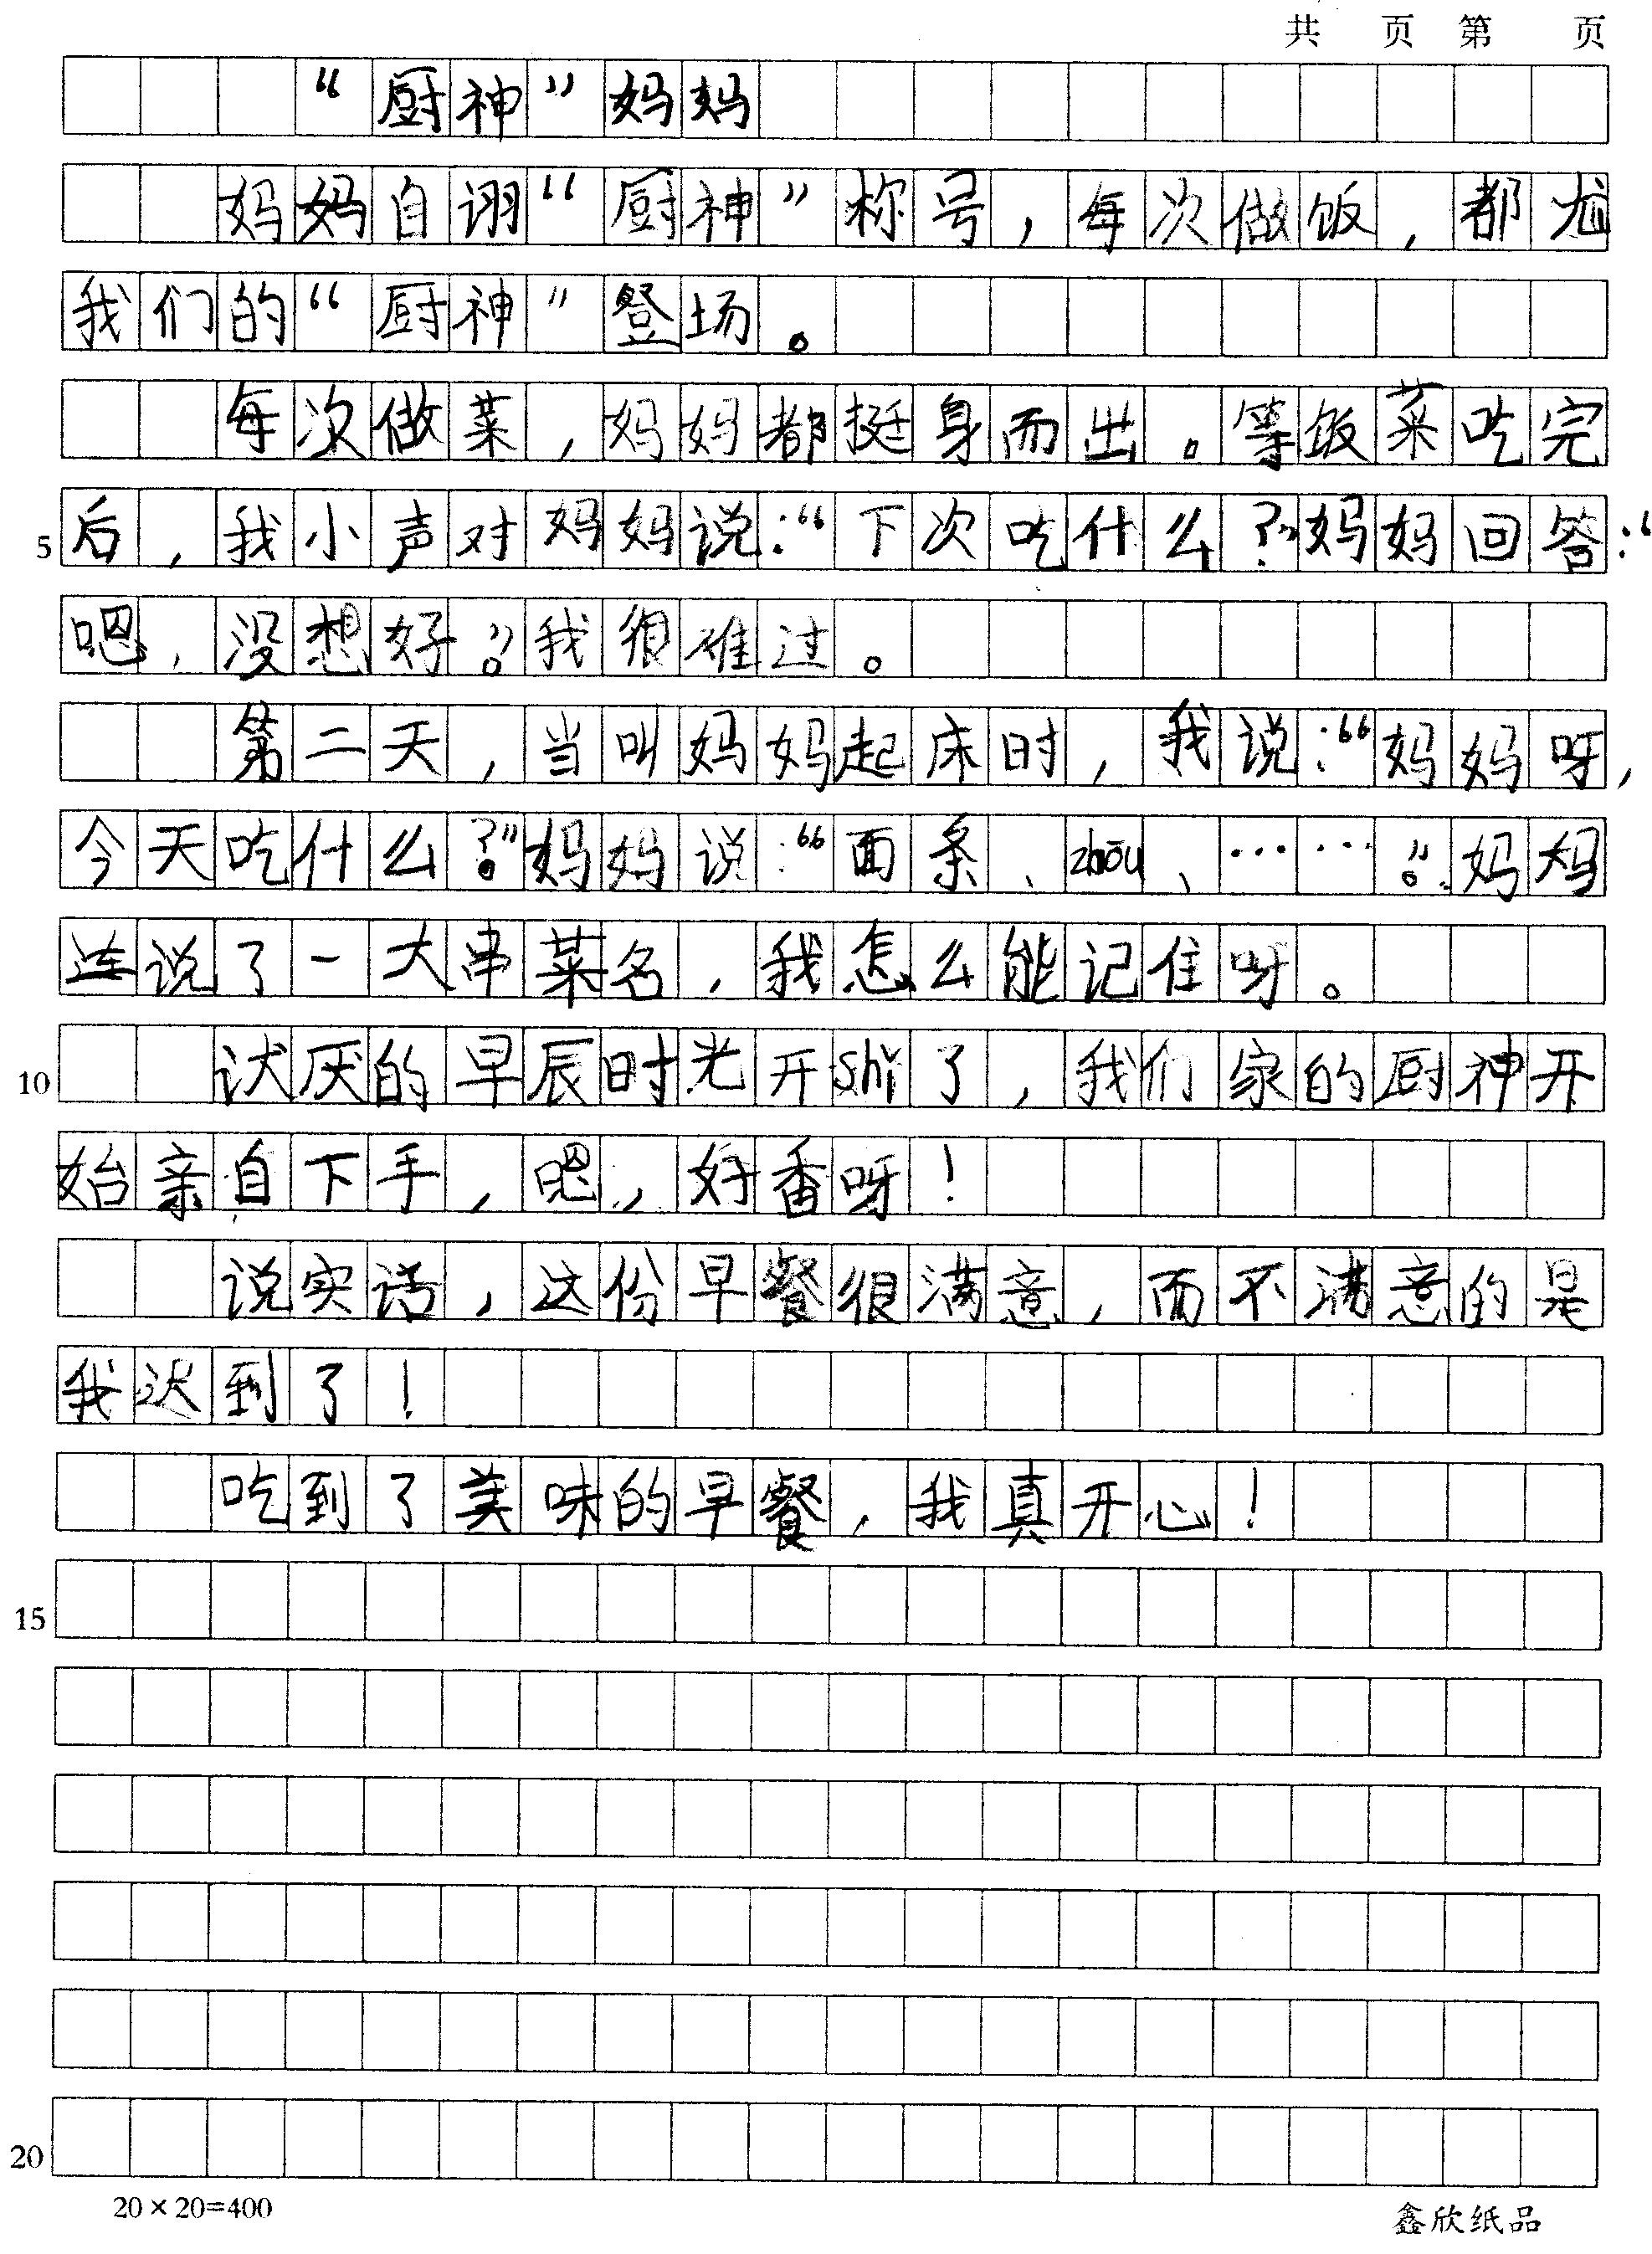 共 页 第 页
“厨神”妈妈
妈妈自诩“厨神”称号，每次做饭，都尬
我们的“厨神”登场。
每次做菜，妈妈都挺身而出。等饭菜吃完
5 后，我小声对妈妈说：“下次吃什么？”妈妈回答：“
嗯，没想好。”我很难过。
第二天，当叫妈妈起床时，我说：“妈妈呀，
今天吃什么？”妈妈说：“面条、zhōu、……。”妈妈
连说了一大串菜名，我怎么能记住呀。
10 厌的早辰时光开shǐ了，我们家的厨神开
始亲自下手，嗯，好香呀！
说实话，这份早餐很满意，而不满意的是
我迟到了！
吃到了美味的早餐，我真开心！
15
20
20×20=400
鑫欣纸品